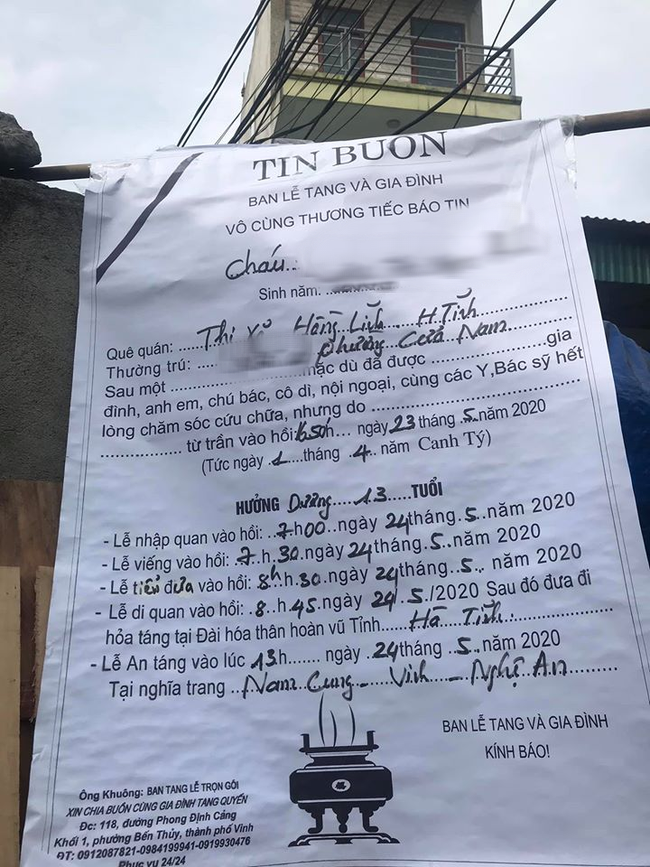 TIN BUỒN
BAN LỄ TANG VÀ GIA ĐÌNH
VÔ CÙNG THƯƠNG TIẾC BÁO TIN
Cháu..
Sinh năm.
Quê quán: ..... Thị xã Hồng Lĩnh H.Tĩnh
Thường trú: ..... phường Cửa Nam
Sau một ..... mặc dù đã được ..... gia
đình, anh em, chú bác, cô dì, nội ngoại, cùng các Y,Bác sỹ hết
lòng chăm sóc cứu chữa, nhưng do .....
..... từ trần vào hồi: ... ngày 23 tháng .5. năm 2020
(Tức ngày .1....tháng .4.. năm Canh Tý)
HƯỞNG Dương.....13.....TUỔI
- Lễ nhập quan vào hồi: .7h00..ngày 24 tháng.5..năm 2020
- Lễ viếng vào hồi: .7.h.30.ngày 24 tháng.5..năm 2020
- Lễ tiễn đưa vào hồi: 8h h.30.ngày 24 tháng .5.. năm 2020
- Lễ di quan vào hồi: .8.h.45.ngày 24/.5./2020 Sau đó đưa đi
hỏa táng tại Đài hóa thân hoàn vũ Tỉnh.....Hà Tĩnh
- Lễ An táng vào lúc 13h....... ngày .24 tháng .5.. năm 2020
Tại nghĩa trang ..Nam Cung - Vinh - Nghệ An
BAN LỄ TANG VÀ GIA ĐÌNH
KÍNH BÁO!
Ông Khuông: BAN TANG LỄ TRỌN GÓI
XIN CHIA BUỒN CÙNG GIA ĐÌNH TANG QUYẾN
Đc: 118, đường Phong Định Cảng
Khối 1, phường Bến Thủy, thành phố Vinh
ĐT: 0912087821-0984199941-0919930476
Phục vụ 24/24